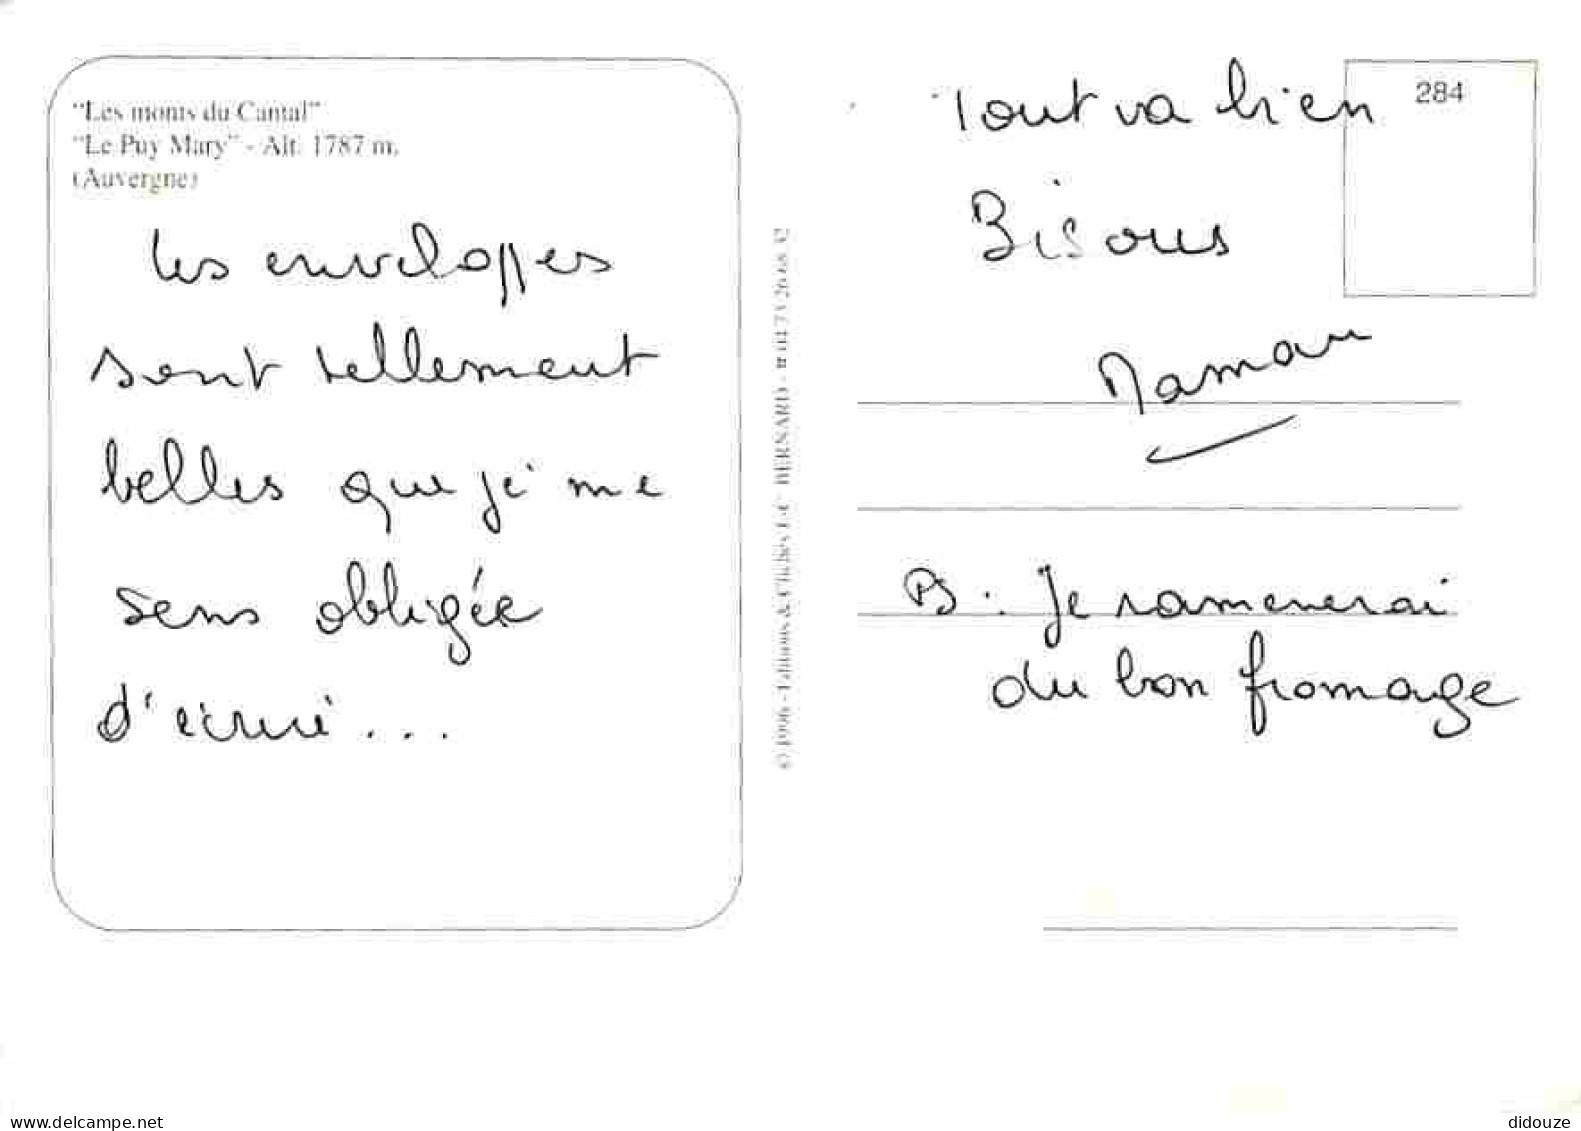 "Les monts du Cantal"
"Le Puy Mary" - Alt. 1787 m.
(Auvergne)
Les enveloppes
sont tellement
belles que je me
sens obligée
d'écrire...
© 1996 - Editions & Clichés BERNARD
284
Tout va bien
Bisous
Maman
PS : Je ramenerai
du bon fromage
www.delcampe.net
didouze